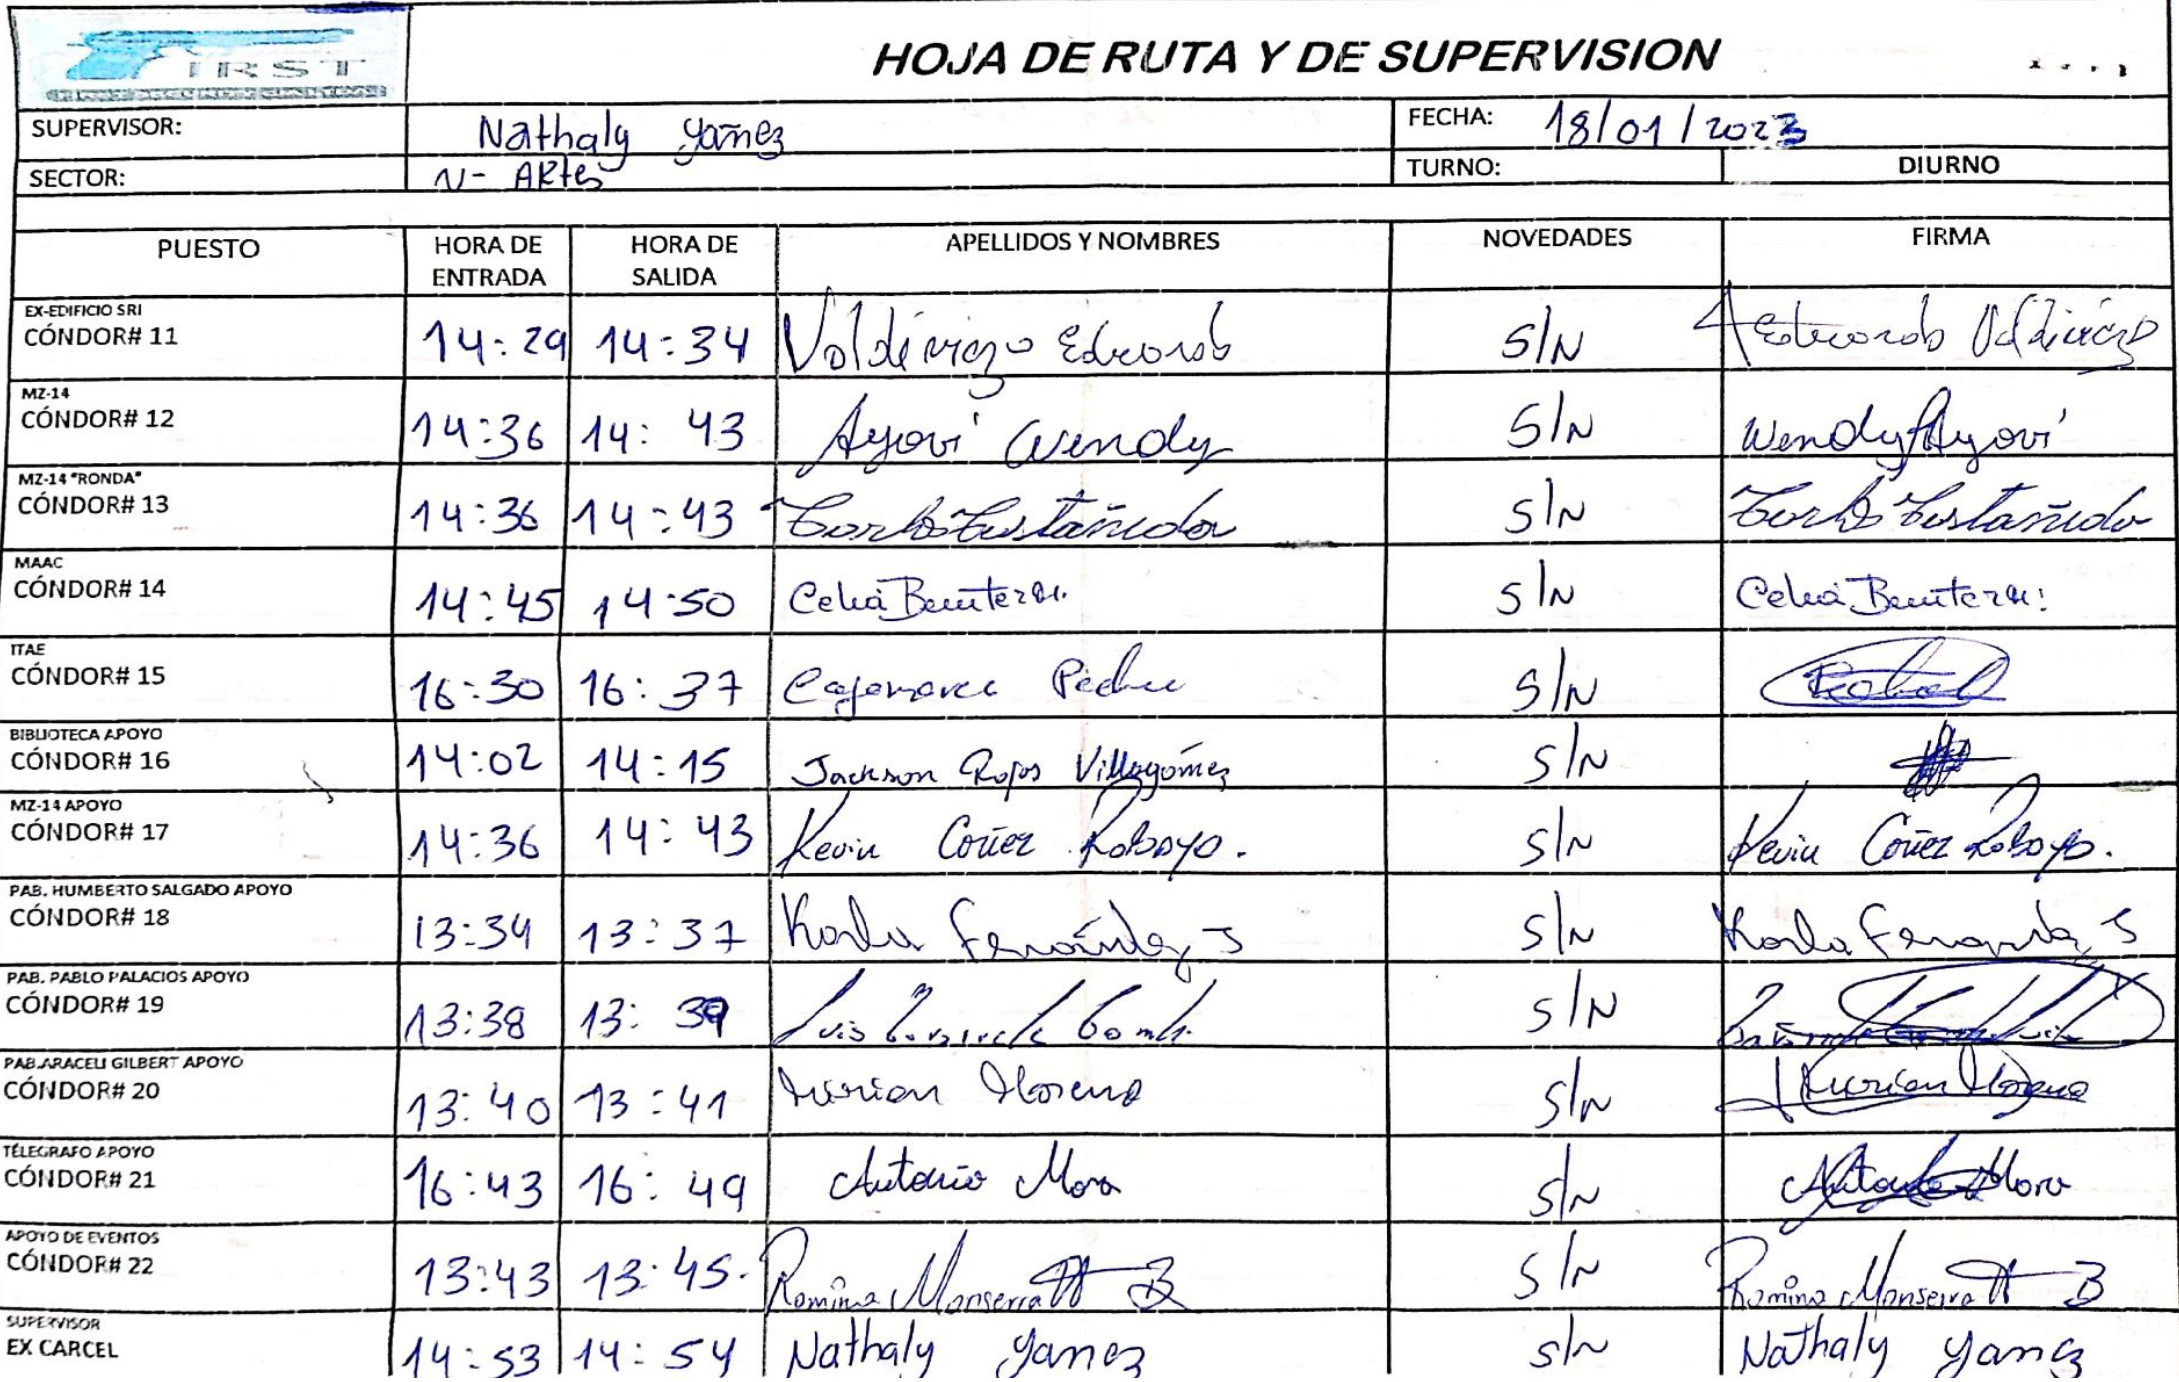 FIRST
HOJA DE RUTA Y DE SUPERVISION
SUPERVISOR: Nathaly Yañez FECHA: 18/01/2023
SECTOR: U- ARtes TURNO: DIURNO
PUESTO HORA DE ENTRADA HORA DE SALIDA APELLIDOS Y NOMBRES NOVEDADES FIRMA
EX-EDIFICIO SRI
CÓNDOR# 11 14:29 14:34 Valdiviezo Eduardo S/N Eduardo Valdiviezo
MZ-14
CÓNDOR# 12 14:36 14:43 Ayoví Wendy S/N Wendy Ayoví
MZ-14 "RONDA"
CÓNDOR# 13 14:36 14:43 S/N
MAAC
CÓNDOR# 14 14:45 14:50 Celia S/N Celia
ITAE
CÓNDOR# 15 16:30 16:37 S/N
BIBLIOTECA APOYO
CÓNDOR# 16 14:02 14:15 Jackson Rojas Villagómez S/N
MZ-14 APOYO
CÓNDOR# 17 14:36 14:43 Kevin S/N Kevin
PAB. HUMBERTO SALGADO APOYO
CÓNDOR# 18 13:34 13:37 Karla Fernández S S/N Karla S
PAB. PABLO PALACIOS APOYO
CÓNDOR# 19 13:38 13:39 Luis S/N
PAB.ARACELI GILBERT APOYO
CÓNDOR# 20 13:40 13:41 Moreno S/N Moreno
TÉLEGRAFO APOYO
CÓNDOR# 21 16:43 16:49 Antonio Mora S/N Antonio Mora
APOYO DE EVENTOS
CÓNDOR# 22 13:43 13:45. Romina Monserratt B S/N Romina Monserratt B
SUPERVISOR
EX CARCEL 14:53 14:54 Nathaly Yanez S/N Nathaly Yanez